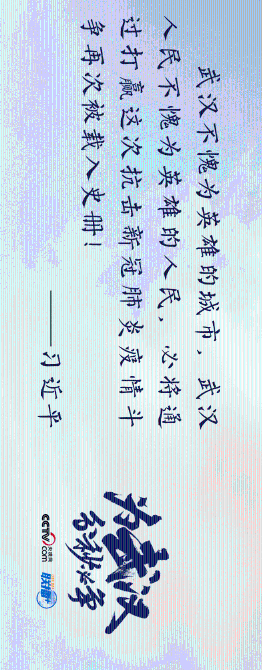 武汉不愧为英雄的城市，武汉
人民不愧为英雄的人民，必将通
过打赢这次抗击新冠肺炎疫情斗
争再次被载入史册！
——习近平
为武汉
分秒必争
CCTV.com 央视网